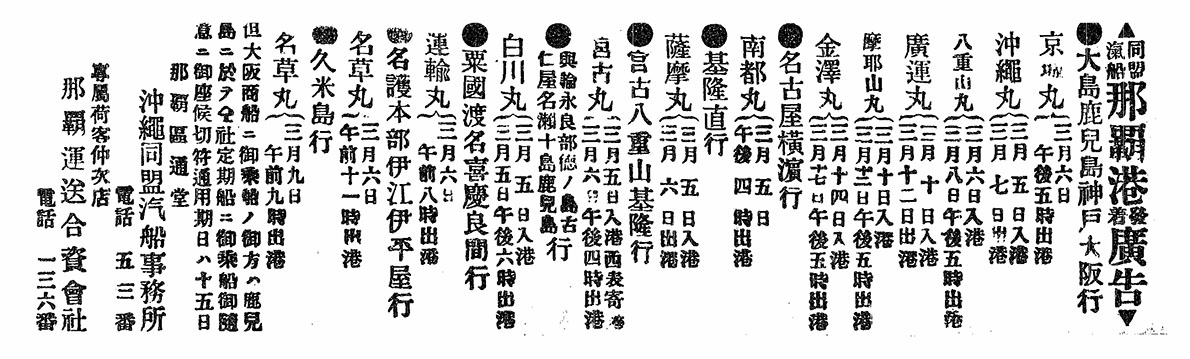 ▲同盟汽船那覇港發着廣告▼
●大島鹿兒島神戸大阪行
京城丸 三月六日 午後五時出港
沖繩丸 三月五日入港 三月七日出港
八重山丸 三月六日入港 三月八日午後五時出港
廣運丸 三月十日入港 三月十二日出港
摩耶山丸 三月十日入港 三月十三日午後五時出港
金澤丸 三月十四日入港 三月十七日午後五時出港
●名古屋橫濱行
南都丸 三月五日 午後四時出港
●基隆直行
薩摩丸 三月五日入港 三月六日出港
●宮古八重山基隆行
宮古丸 三月五日入港西表寄港 三月六日午後四時出港
●與論永良部德ノ島古仁屋名瀨十島鹿兒島行
白川丸 三月五日入港 三月五日午後六時出港
●粟國渡名喜慶良間行
運輸丸 三月六日 午前八時出港
●名護本部伊江伊平屋行
名草丸 三月六日 午前十一時出港
●久米島行
名草丸 三月九日 午前九時出港
但大阪商船ニ御乘船ノ御方ハ鹿兒
島ニ於テ仝社定期船ニ御乘船御隨
意ニ御座候切符通用期日ハ十五日
那覇區通堂
沖繩同盟汽船事務所
電話 五三番
專屬荷客仲次店
那覇運送合資會社
電話 一三六番